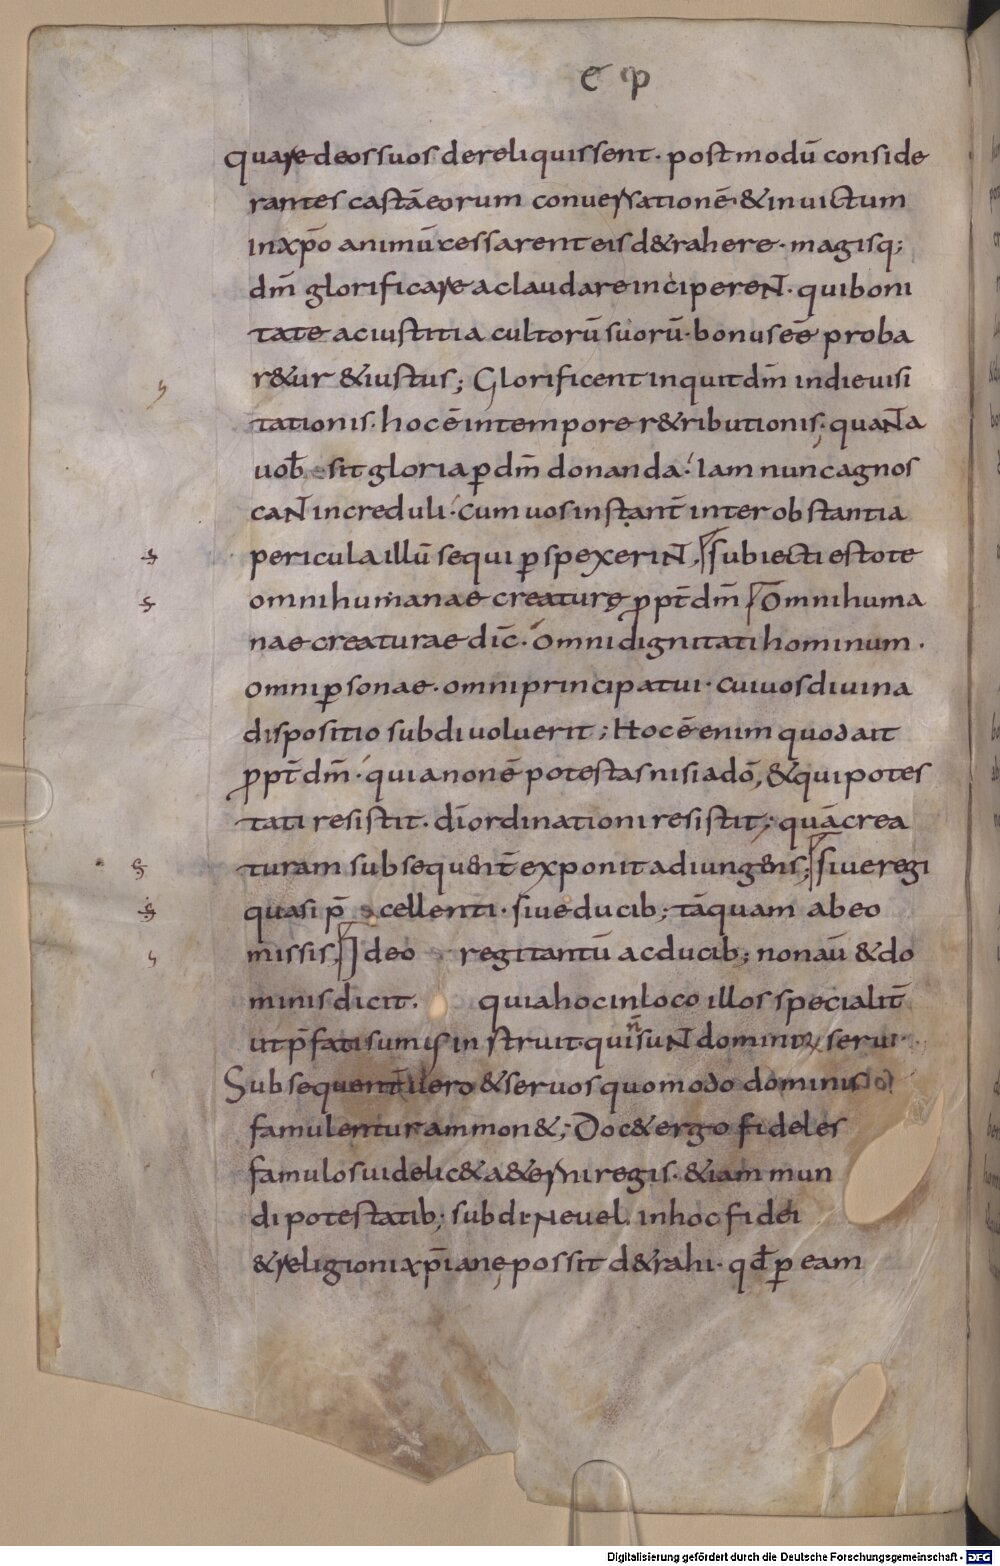 E Ep
quare deos suos dereliquissent · postmodū conside
rantes castā eorum conuersationē · & inuictum
in xp̄o animū cessarent eis d&rahere · magisq;
dm̄ glorificare ac laudare inciperent · qui boni
tate ac iustitia cultorū suorū · bonus eē proba
r&ur & iustus; Glorificent inquit dm̄ in die uisi
tationis · hoc ē in tempore r&ributionis; quanta
uob̄ sit gloria p dm̄ donanda · Iam nunc agnos
cant increduli · Cum uos instant̄ inter obstantia
pericula illū sequi pspexerint, subiecti estote
omni humanae creaturę ppt̄ dm̄ Omni huma
nae creaturae dic̄ · omni dignitati hominum ·
omni psonae · omni principatui · cui uos diuina
dispositio subdi uoluerit; Hoc ē enim quod ait
ppt̄ dm̄ · quia non ē potestas nisi a dō, & qui potes
tati resistit · dī ordinationi resistit; quā crea
turam subsequent̄ exponit adiungens; siue regi
quasi p̄cellenti · siue ducib; tāquam ab eo
missis, Ideo regi tantū ac ducib; non aū & do
minis dicit. quia hoc in loco illos specialit̄
ut p̄fati sumus instruit qui n̄ sunt dominoꝝ serui ·
Subsequent̄ uero & seruos quomodo dominis
famulentur ammon&; Doc& ergo fideles
famulos uidelic& a&erni regis · & iam mun
di potestatib; subdi · ne uel in hoc fidei
& religioni xp̄ianę possit d&rahi · qd̄ p eam
Digitalisierung gefördert durch die Deutsche Forschungsgemeinschaft - DFG